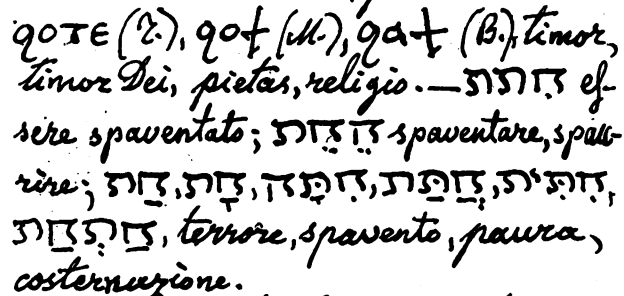 ϩⲟⲧⲉ (T.), ϩⲟϯ (M.), ϩⲁϯ (B.), timor,
timor Dei, pietas, religio. — חתת es-
sere spaventato; הֵחֵת spaventare, spau-
rire; חַת, חָת, חִתָּה, חֲתַּת, חִתִּית,
חַתְחַת, terrore, spavento, paura,
costernazione.